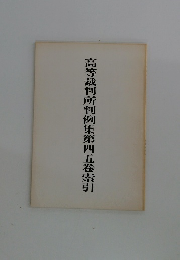 高等裁判所判例集第四五巻索引